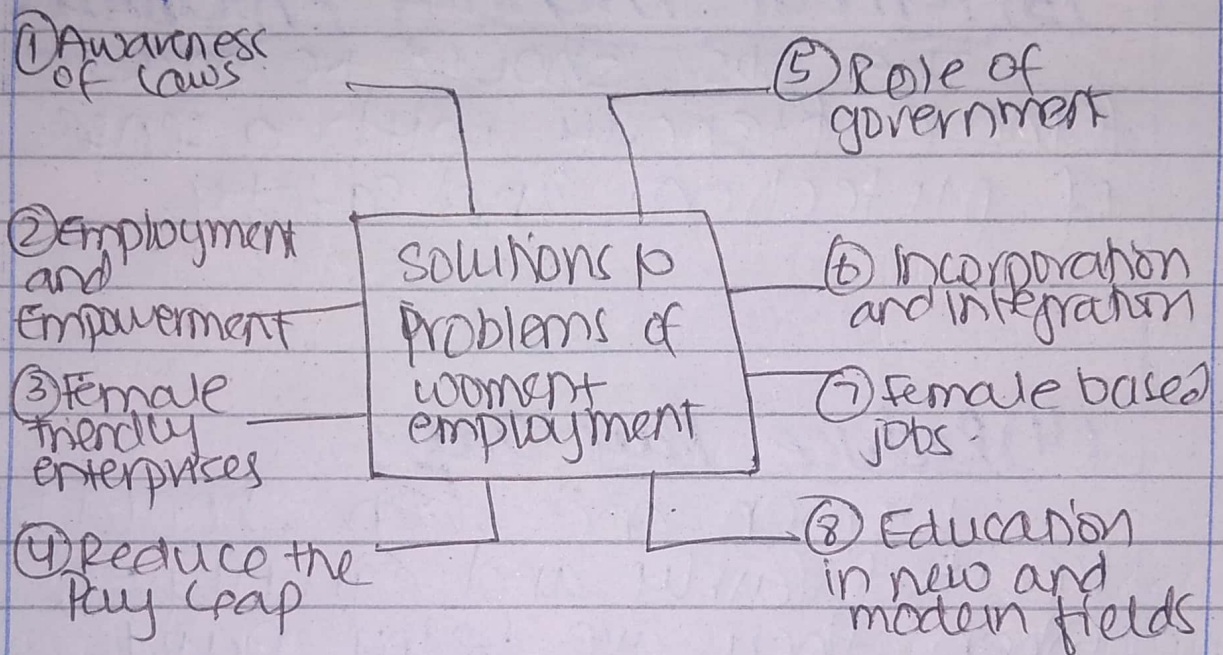 ① Awareness
of Laws
② Employment
and
Empowerment
③ Female
friendly
enterprises
④ Reduce the
Pay Gap
Solutions to
Problems of
woment
employment
⑤ Role of
government
⑥ Incorporation
and integration
⑦ Female based
jobs.
⑧ Education
in new and
modern fields